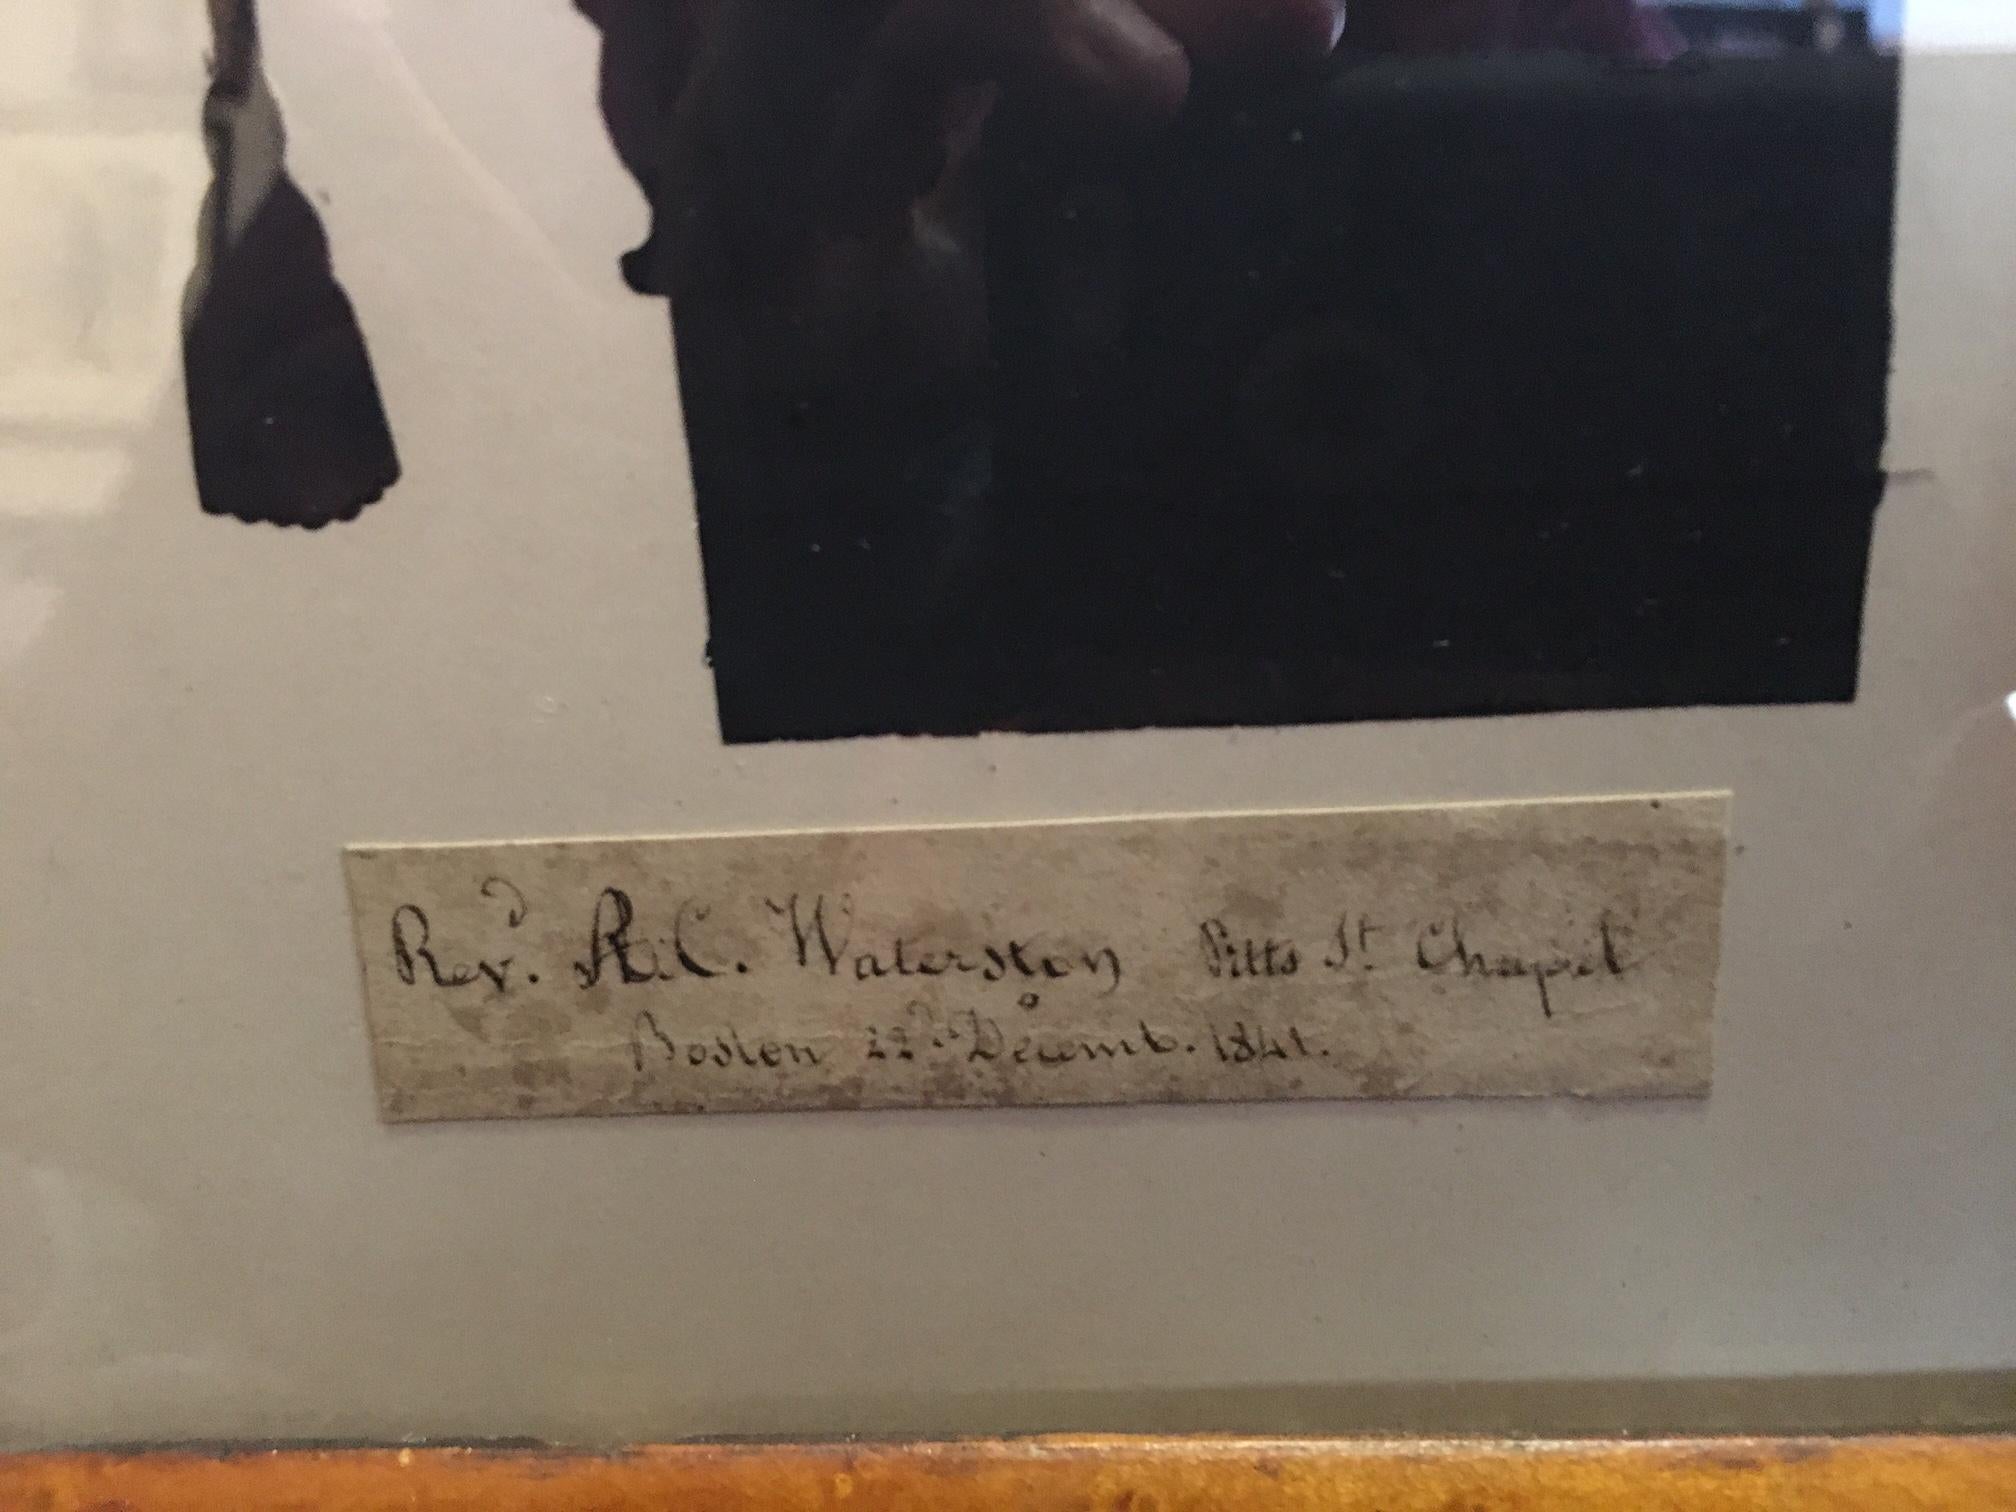 Revd. R.C. Waterston Pitts St. Chapel
Boston 22d. Decemb. 1841.